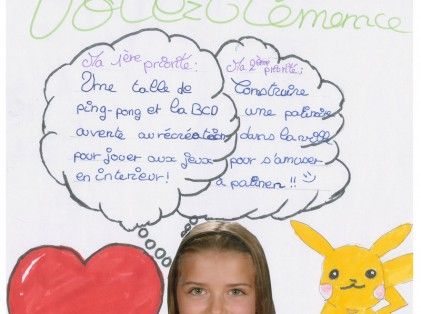 Votez Clémence
Ma 1ère priorité:
Une table de
ping-pong et la BCD
ouverte au récréation
pour jouer aux jeux
en interieur!
Ma 2ème priorité:
Construire
une patinoire
dans la ville
pour s'amuser
à patiner!!